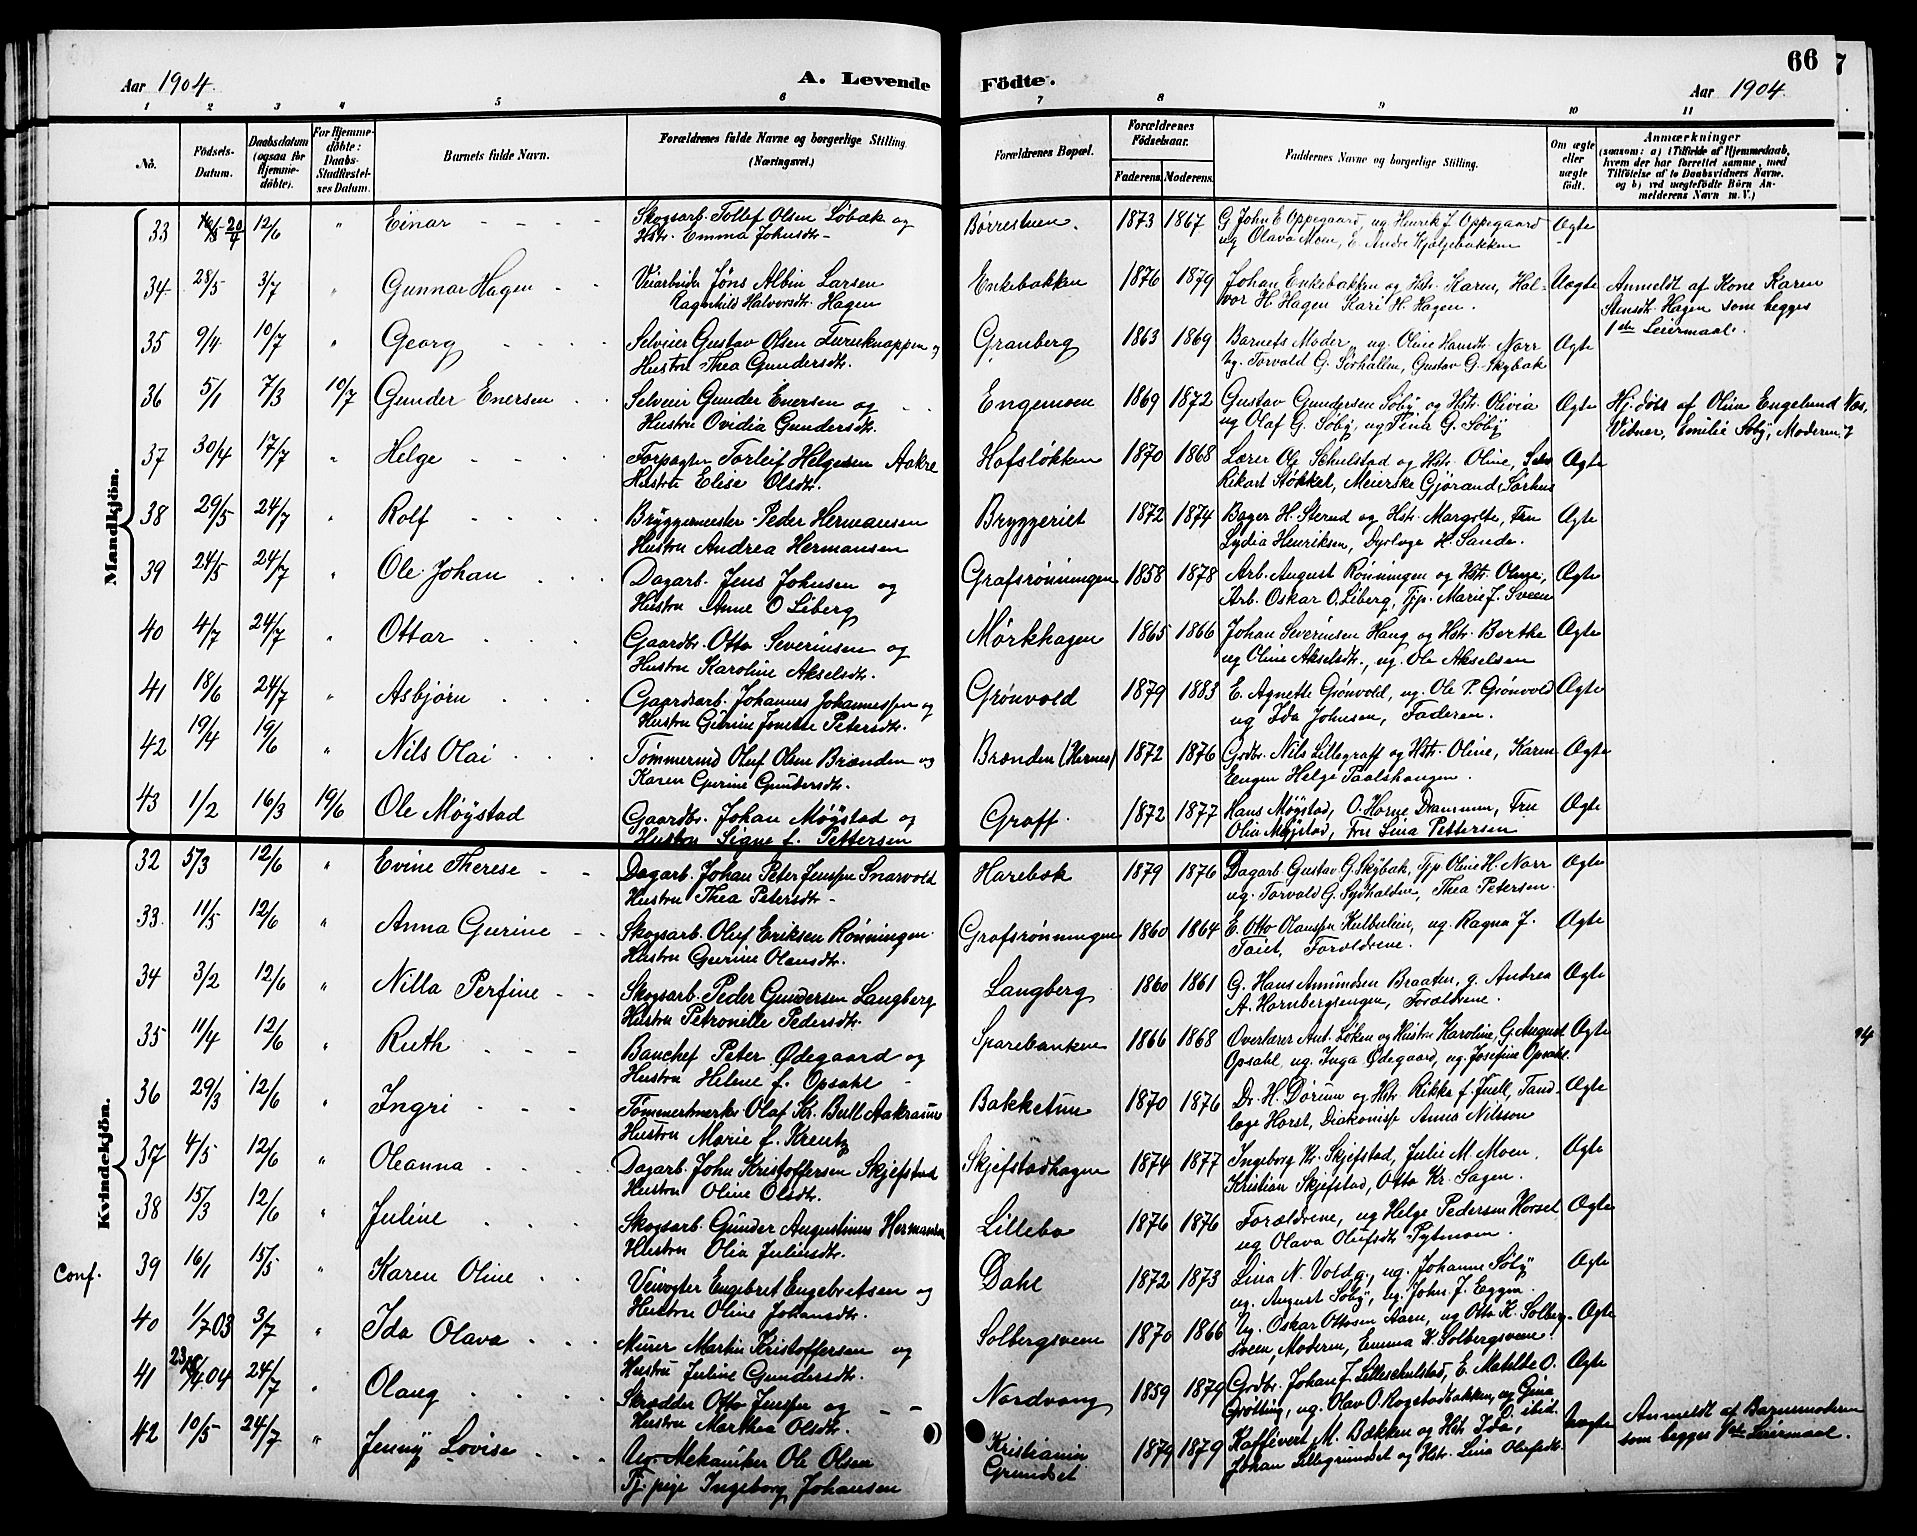 66
Aar 1904.
A. Levende Födte.
Aar 1904.
1 2 3 4 5 6 7 8 9 10 11
No.
Födsels-Datum.
Daabsdatum (ogsaa for Hjemmedöbte).
For Hjemmedöbte: Daabs-Stadfæstelses Datum.
Barnets fulde Navn.
Forældrenes fulde Navne og borgerlige Stilling. (Næringsvei.)
Forældrenes Bopæl.
Forældrenes Födselsaar.
Faderens. Moderens.
Faddernes Navne og borgerlige Stilling.
Om ægte eller uægte født.
Anmærkninger
(saasom: a) i Tilfælde af Hjemmedaab, hvem der har forrettet samme, med Tilföielse af to Daabsvidners Navne, og b) ved uægtefödte Börn Anmelderens Navn m. V.)
Mandkjön.
33 20/4 12/6 " Einar - - - Skogsarb. Tollef Olsen Løbæk og Børrestuen. 1873 1867 G John E Oppegaard, ug Henrik J. Oppegaard Ægte
Hstr. Emma Johnsdtr. ug Olava Moen, E. Andre Kjøljebakken
34 28/5 3/7 " Gunnar Hagen - - Veiarbeider Jøns Albin Larsen Enkebakken 1876 1879 Johan Enkebakken og Hstr. Karen, Hal- Uægte Anmeldt af Kone Karen
Ragnhild Halvorsdtr. Hagen vor H. Hagen Kari H. Hagen. Stensdtr. Hagen som begges
1ste Leiermaal.
35 9/4 10/7 " Georg - - - Selveier Gustav Olsen Tureknappen og Granberg 1863 1869 Barnets Moder, ug. Oline Hansdtr. Norr Ægte
Hustru Thea Gundersdtr. Ug. Torvald G. Sørhallen, Gustav G. Skybak
36 5/1 7/3 10/7 Gunder Enersen - - Selveier Gunder Enersen og Engemoen 1869 1872 Gustav Gundersen Søby og Hstr. Olivia Ægte Hj. døbt af Olin Engelund Næs,
Hustru Ovidia Gundersdtr. ug Olaf G. Søby, ug Tina G. Søby Vidner, Emilie Søby, Moderen
37 30/4 17/7 " Helge - - - Forpagter Torleif Helgesen Aakre Hofsløkken 1870 1868 Lærer Ole Schulstad og Hstr. Oline, Ægte
Hustru Elise Olsdtr. Rikart Støkket, Meierske Gjørand Sørhus
38 29/5 24/7 " Rolf - - - Bryggemester Peder Hermansen Bryggeriet 1872 1874 Bager H. Sterud og Hstr. Margrete, Fru Ægte
Hustru Andrea Hermansen Lydia Henriksen, Dyrlæge H. Sande.
39 24/5 24/7 " Ole Johan - - - Dagarb. Jens Johnsen og Grafsrønningen 1858 1878 Arb. August Rønningen og Hstr. Oline, Ægte
Hustru Anne O Liberg Arb. Oskar O. Liberg, Tjp. Marie J. Sveen
40 4/7 24/7 " Ottar - - - Gaardbr. Otto Severinsen og Mørkhagen 1865 1866 Johan Severinsen Haug og Hstr. Berthe Ægte
Hustru Karoline Akselsdtr. ug Oline Akselsdtr., ug. Ole Akselsen
41 18/6 24/7 " Asbjørn - - - Gaardsarb. Johannes Johannessen og Grønvold 1879 1883 E. Agnette Grønvold, ug. Ole P. Grønvold Ægte
Hustru Gurine Jonette Petersdtr. ug Ida Johnsen, Faderen.
42 19/4 19/6 " Nils Olai - - - Tømmermd Oluf Olsen Brænden og Brænden (Hernes) 1872 1876 Grdbr. Nils Lillegraff og Hstr. Oline, Karen Ægte
Karen Gurine Gundersdtr. Engen Helge Paalshaugen.
43 1/2 16/3 19/6 Ole Møystad Gaardbr. Johan Møystad og Graff. 1872 1877 Hans Møystad, O. Horne Drammen, Fru Ægte
Hustru Signe f. Pettersen Olia Møystad, Fru Lina Pettersen
Kvindekjön.
32 5/3 12/6 " Evine Therese - - Dagarb. Johan Peter Jenssen Snarvold Harebak 1879 1876 Dagarb. Gustav G. Skybak, Tjp Oline H. Norr Ægte
Hustru Thea Petersdtr. ug. Torvald G. Sydhalden, Thea Petersen.
33. 11/5 12/6 " Anna Gurine - - Skogsarb. Oluf Eriksen Rønningen. Grafsrønningen 1860 1864 E. Otto Olaussen Kulbulien, ug. Ragna J. Ægte
Hustru Gurine Olausdtr. Taiet, Forældrene.
34 3/2 12/6 " Nilla Perfine - - Skogsarb. Peder Gundersen Langberg Langberg 1860 1861 G. Hans Amundsen Braaten, g. Andrea Ægte
Hustru Petronille Pedersdtr. A. Hornbergsengen, Forældrene.
35 11/4 12/6 " Ruth - - - Banchef Peter Ødegaard og Sparebanken 1866 1868 Overlærer Ant. Løken og Hustru Karoline, G. August Ægte
Hustru Helene f. Opsahl Opsahl, ug. Inga Ødegaard, ug. Josefine Opsahl.
36 29/3 12/6 " Ingri - - - Tømmermerker Olaf Kr. Bull Aakrann Bakketun 1870 1876 Dr. H. Dørum og Hstr Rikka f. Juell, Tand- Ægte
Hustru Marie f. Kreutz læge Horst, Diakonisse Anna Nilsson
37 4/5 12/6 " Oleanna - - - Dagarb. John Kristoffersen Skjefstad Skjefstadhagen 1874 1877 Ingeborg Kr. Skjefstad, Julie M. Moen, Ægte
Hustru Oline Olsdtr. Kristian Skjefstad, Otto Kr. Sagen.
38 15/3 12/6 " Juline - - - Skogsarb. Gunder Augustinus Hermansen Lillebo 1876 1876 Forældrene, ug Helge Pedersen Horset Ægte
Hustru Olia Julinsdtr. ug Olava Olufsdtr Pytmoen.
Conf. 39 16/1 15/5 " Karen Oline - - Veivogter Engebret Engebretsen og Dahl 1872 1873 Lina N. Vold g., ug. Johanne Søby Ægte
Hustru Oline Johansdtr. ug. August Søby, ug. John J. Eggen.
40 1/7 03 3/7 " Ida Olava - - - Murer Martin Kristoffersen og Solbergsveen 1870 1866 Ug. Oskar Ottosen Aaen, ug Otto K. Solberg- Ægte
Hustru Juline Gundersdtr. sveen, Moderen, Emma K. Solbergsveen.
41 23/4 04 24/7 " Olaug - - - Skrædder Otto Jenssen og - - Nordvang 1859 1879 Grdbr. Johan J. Lilleschulstad, E. Matilde O. Ægte
Hustru Marthea Olsdtr. Grøtting, ug. Olav O. Rogstadbakken, ug Gina O. ibid.
42 10/5 24/7 " Jenny Lovise - - - Ug. Mekaniker Ole Olsen Kristiania 1879 1879 Kaffevert M. Bækken og Hstr. Ida, Uægte Anmeldt af Barnemoderen
Tj. pige Ingeborg Johansen Grundset Johan Lillegrundset og Hstr. Lina Olufsdtr. som begges 1ste Leiermaal.